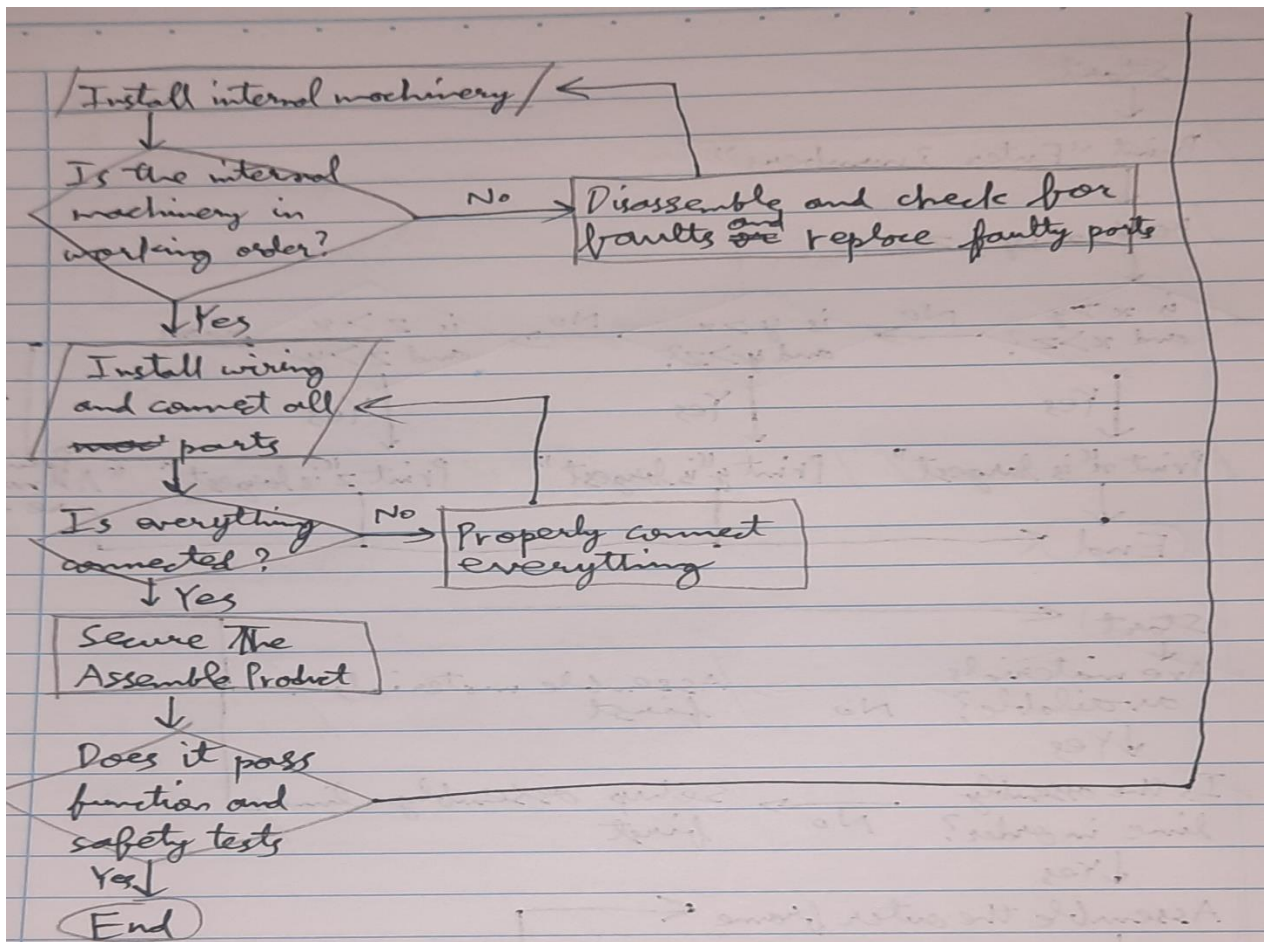 Install internal machinery
Is the internal
machinery in
working order?
No
Disassemble and check for
faults and replace faulty parts
Yes
Install wiring
and connect all
parts
Is everything
connected?
No
Properly connect
everything
Yes
Secure The
Assemble Product
Does it pass
function and
safety tests
Yes
End